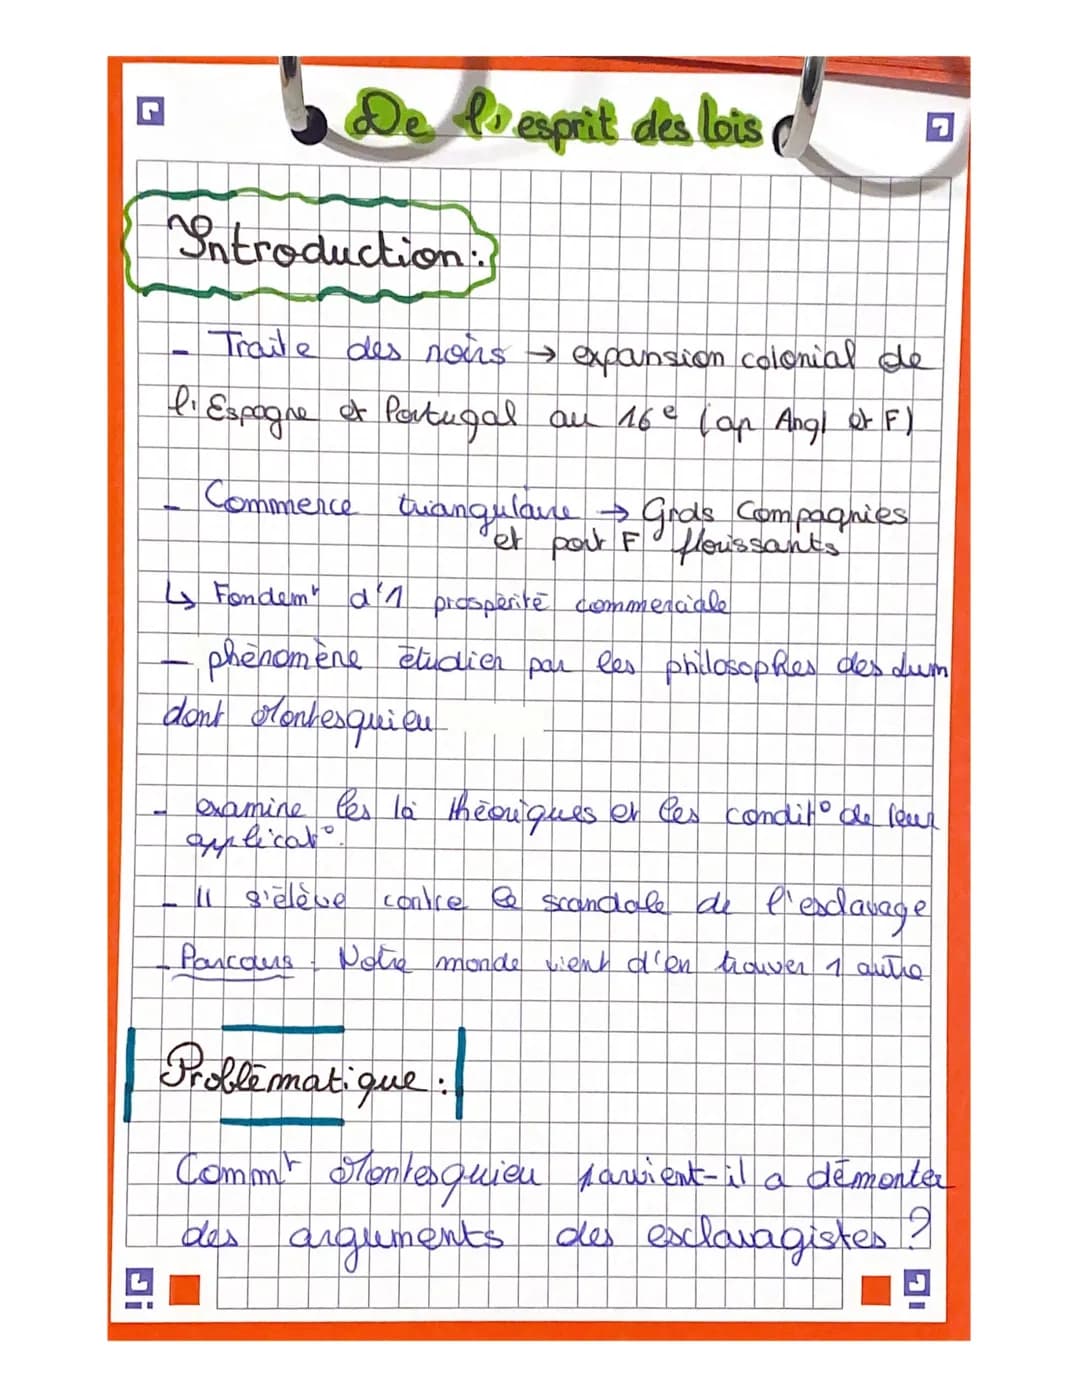 De l'esprit des lois
Introduction :
- Traite des noirs → expansion colonial de
l'Espagne et Portugal au 16e (ap Angl et F)
- Commerce triangulaire → Grds Compagnies
et port F florissants
↳ Fondemt d'1 prospérité commerciale
- phénomène étudier par les philosophes des lum
dont Montesquieu
- examine les loi théoriques et les condit° de leur
applicat°.
- Il s'élève contre le scandale de l'esclavage
- Parcours : Notre monde vient d'en trouver 1 autre
Problématique :
Commt Montesquieu parvient-il a démonter
des arguments des esclavagistes ?